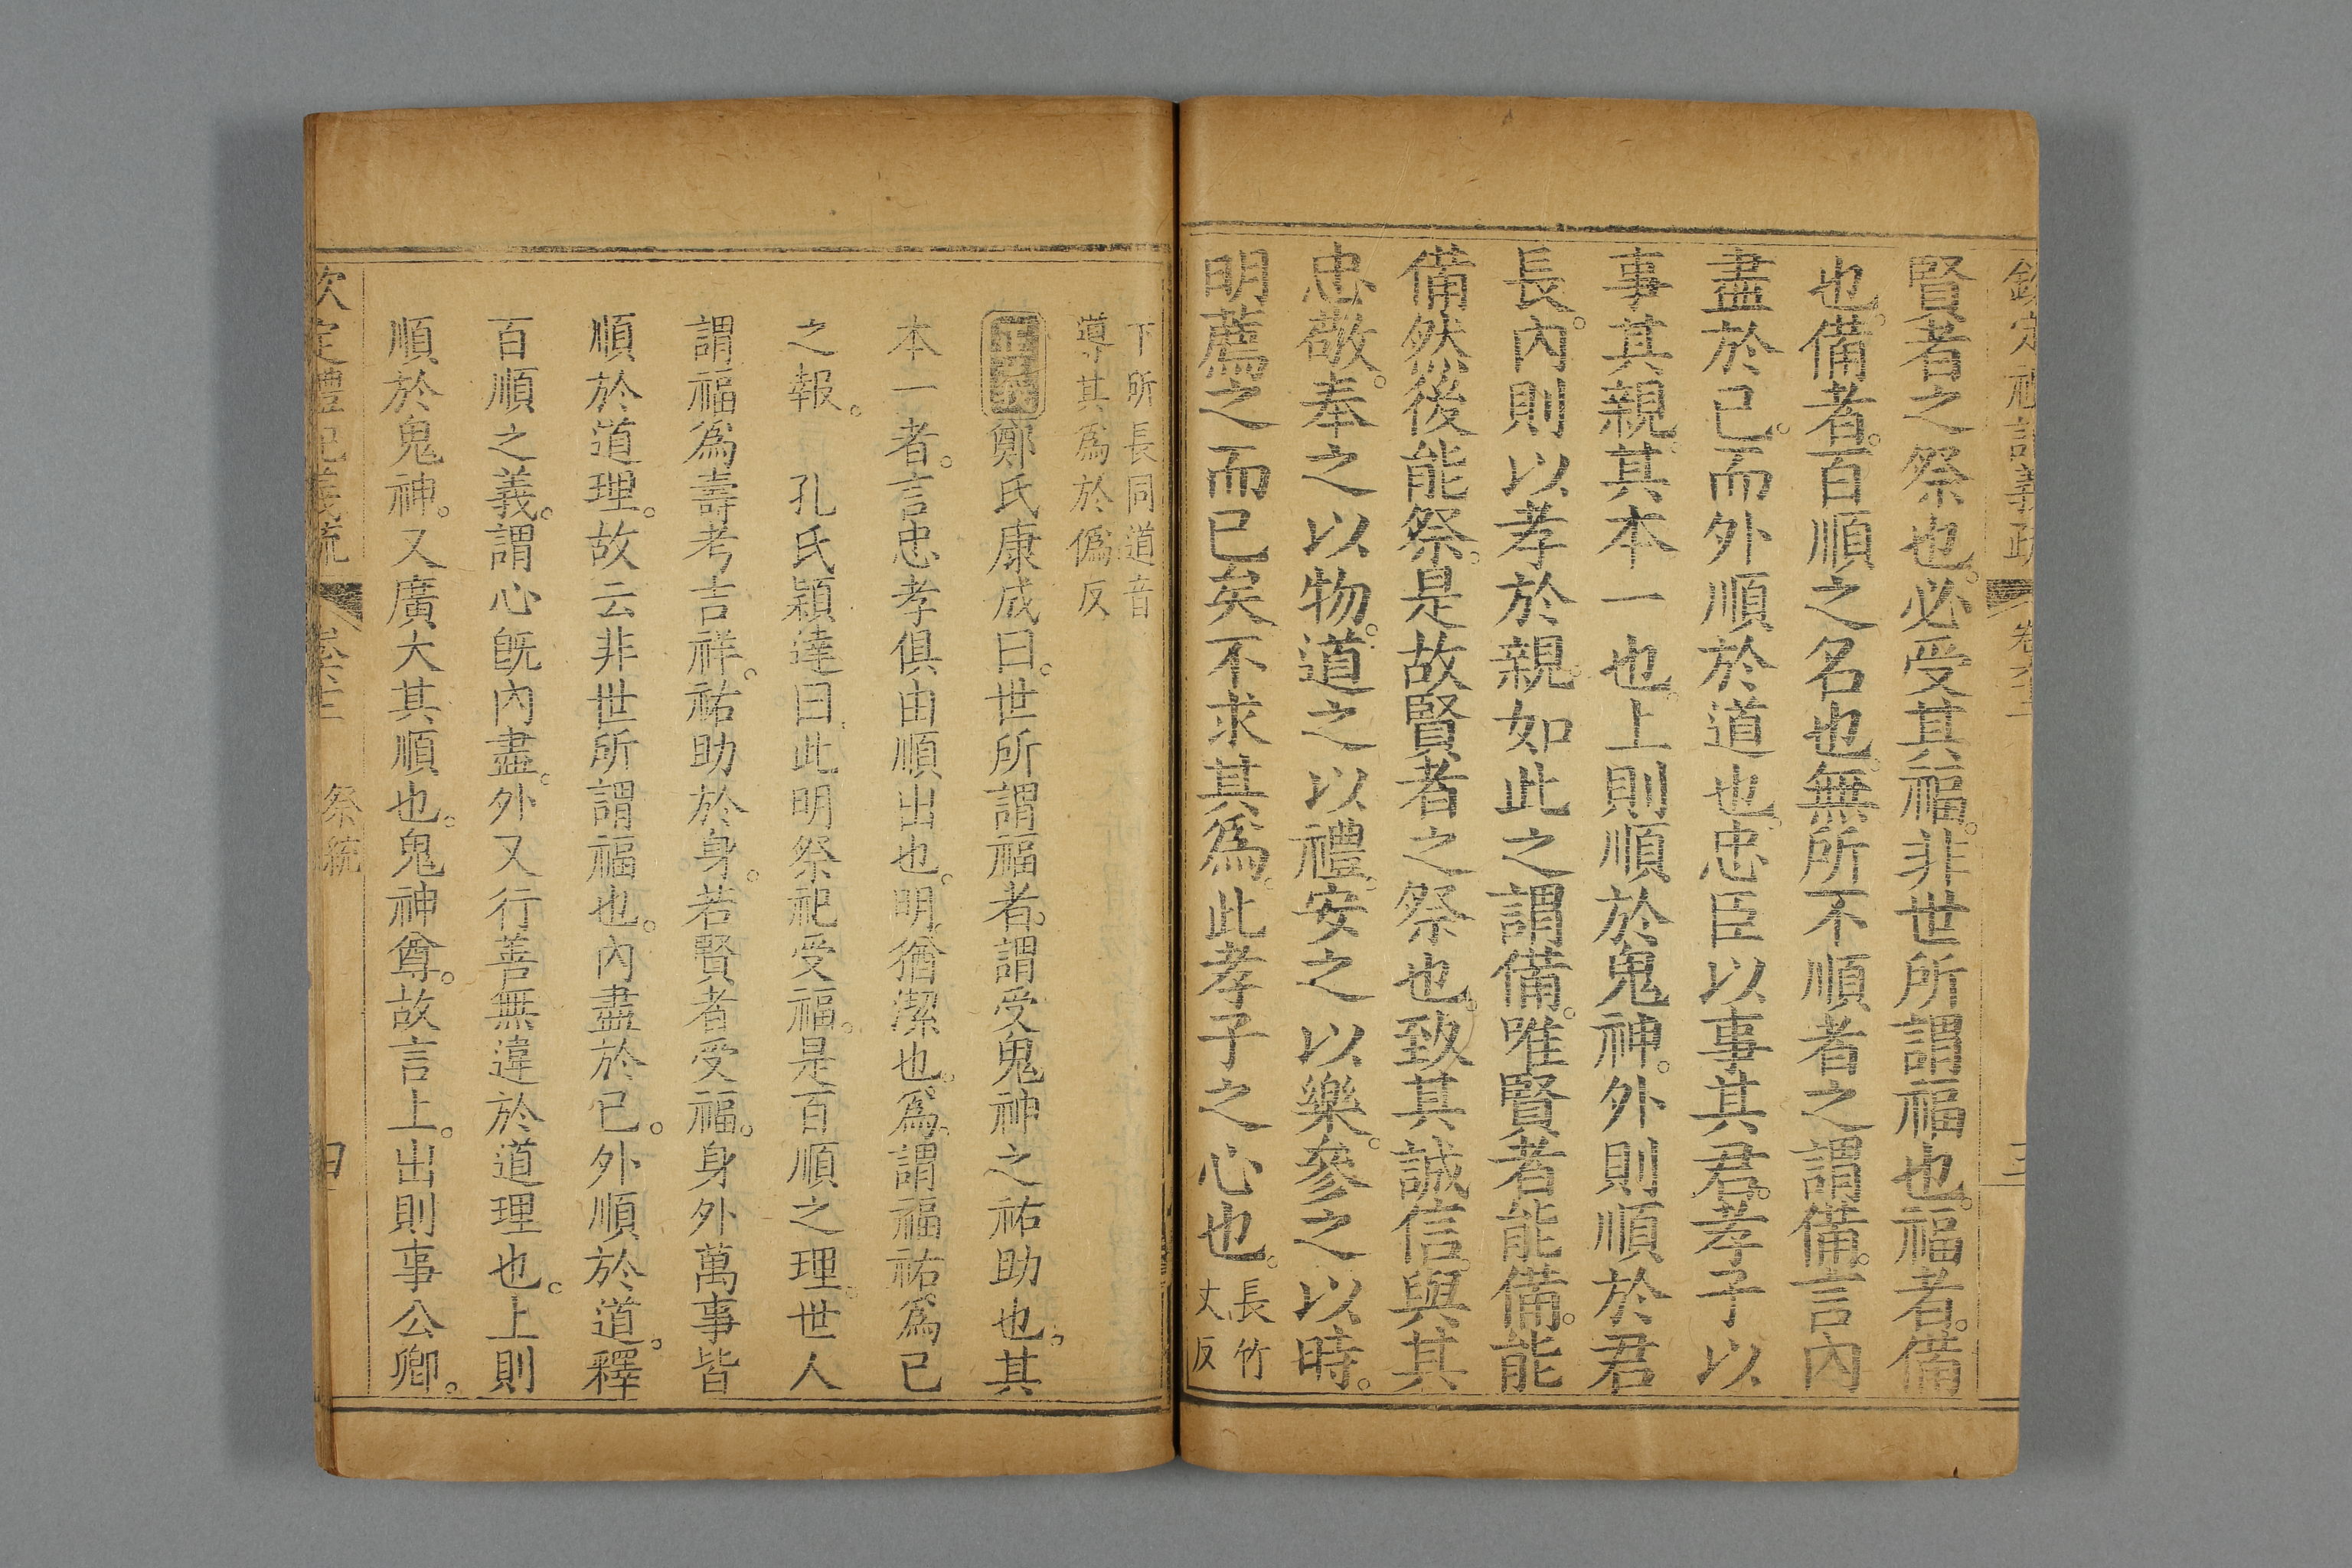 賢者之祭也。必受其福。非世所謂福也。福者。備
也。備者。百順之名也。無所不順者之謂備。言內
盡於己。而外順於道也。忠臣以事其君。孝子以
事其親。其本一也。上則順於鬼神。外則順於君
長。內則以孝於親。如此之謂備。唯賢者能備。能
備然後能祭。是故賢者之祭也。致其誠信。與其
忠敬。奉之以物。道之以禮。安之以樂。參之以時。
明薦之而已矣。不求其為。此孝子之心也。長竹
丈反
下所長同道音
導其爲於僞反
正義鄭氏康成曰。世所謂福者。謂受鬼神之祐助也。其
本一者。言忠孝俱由順出也。明。猶潔也。爲。謂福祐。爲己
之報。 孔氏穎達曰。此明祭祀受福。是百順之理。世人
謂福爲壽考吉祥。祐助於身。若賢者受福。身外萬事皆
順於道理。故云非世所謂福也。內盡於已。外順於道。釋
百順之義。謂心旣內盡。外又行善無違於道理也。上則
順於鬼神。又廣大其順也。鬼神尊。故言上。出則事公卿。
祭統